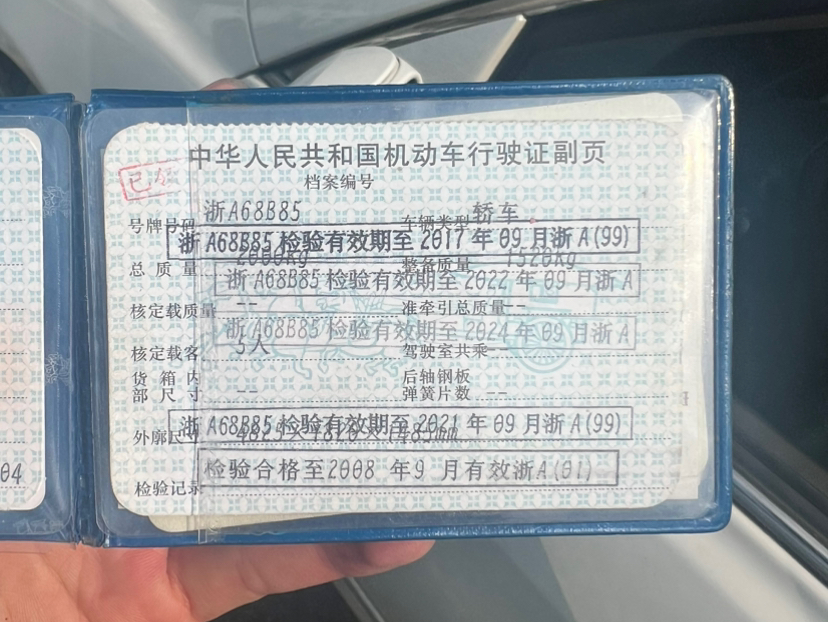 中华人民共和国机动车行驶证副页
档案编号
号牌号码 浙A68B85 车辆类型 轿车
浙A68B85检验有效期至2017年09月浙A(99)
总质量 2000kg 整备质量 1520kg
浙A68B85检验有效期至2022年09月浙A
核定载质量 -- 准牵引总质量 --
浙A68B85检验有效期至2024年09月浙A
核定载客 5人 驾驶室共乘 --
货箱内部尺寸 -- 后轴钢板弹簧片数 --
浙A68B85检验有效期至2021年09月浙A(99)
外廓尺寸
检验合格至2008年9月有效浙A(01)
检验记录
04